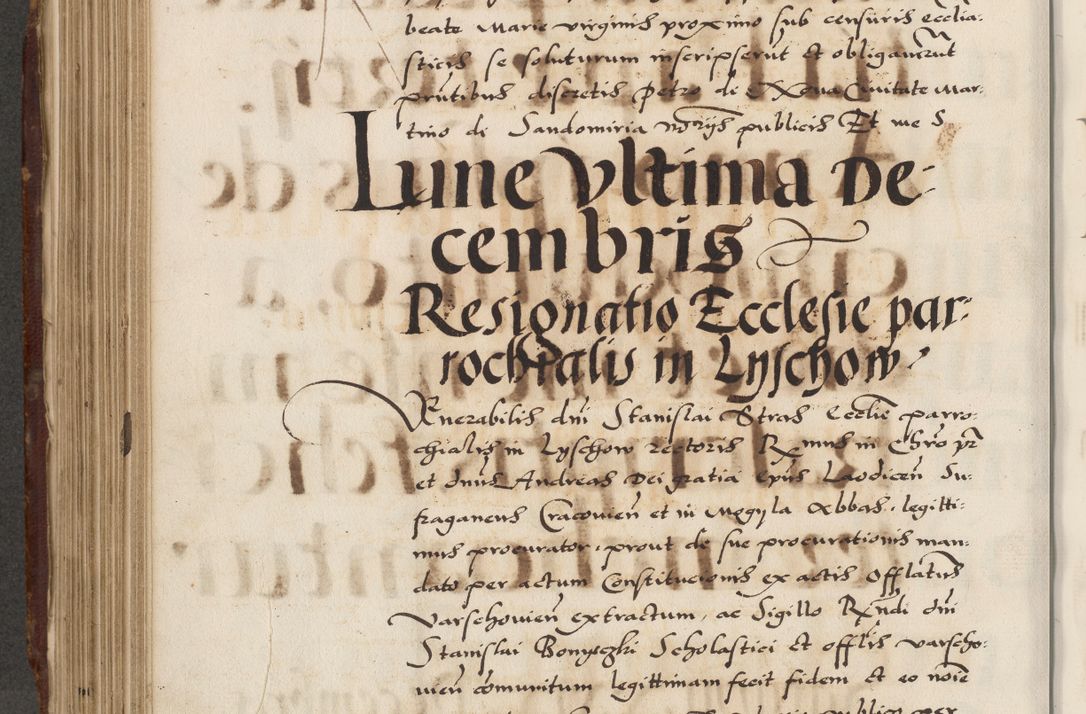 beate Marie virginis proximo sub censuris ecclia:
sticis se soluturum inscripserūt et obligaverūt
pñtibus discretis Petro de Nova Civitate Mar:
tino de Sandomiria notrijs publicis Et me S
Lune vltima De:
cembris
Resignatio Ecclesie par:
rochialis in Lyschow
Venerabilis dñi Stanislai Stras Ecclīe parro:
chialis in Lyschow rectoris Rx̄mus in Chr̄o pr̄
et dñus Andreas Dei gratia Ep̄us Laodiceñ Su:
fraganeus Cracovieñ et in Mogyla Abbas, legitti:
mus procurator, prout de sue procurationis man:
dato per actum Constitucionis ex actis offlatus
Varschovieñ extractum, ac Sigillo Rx̄ndi dñi
Stanislai Scholastici et offlis varscho:
vieñ cōmunitum legittimam fecit fidem et eo noīe